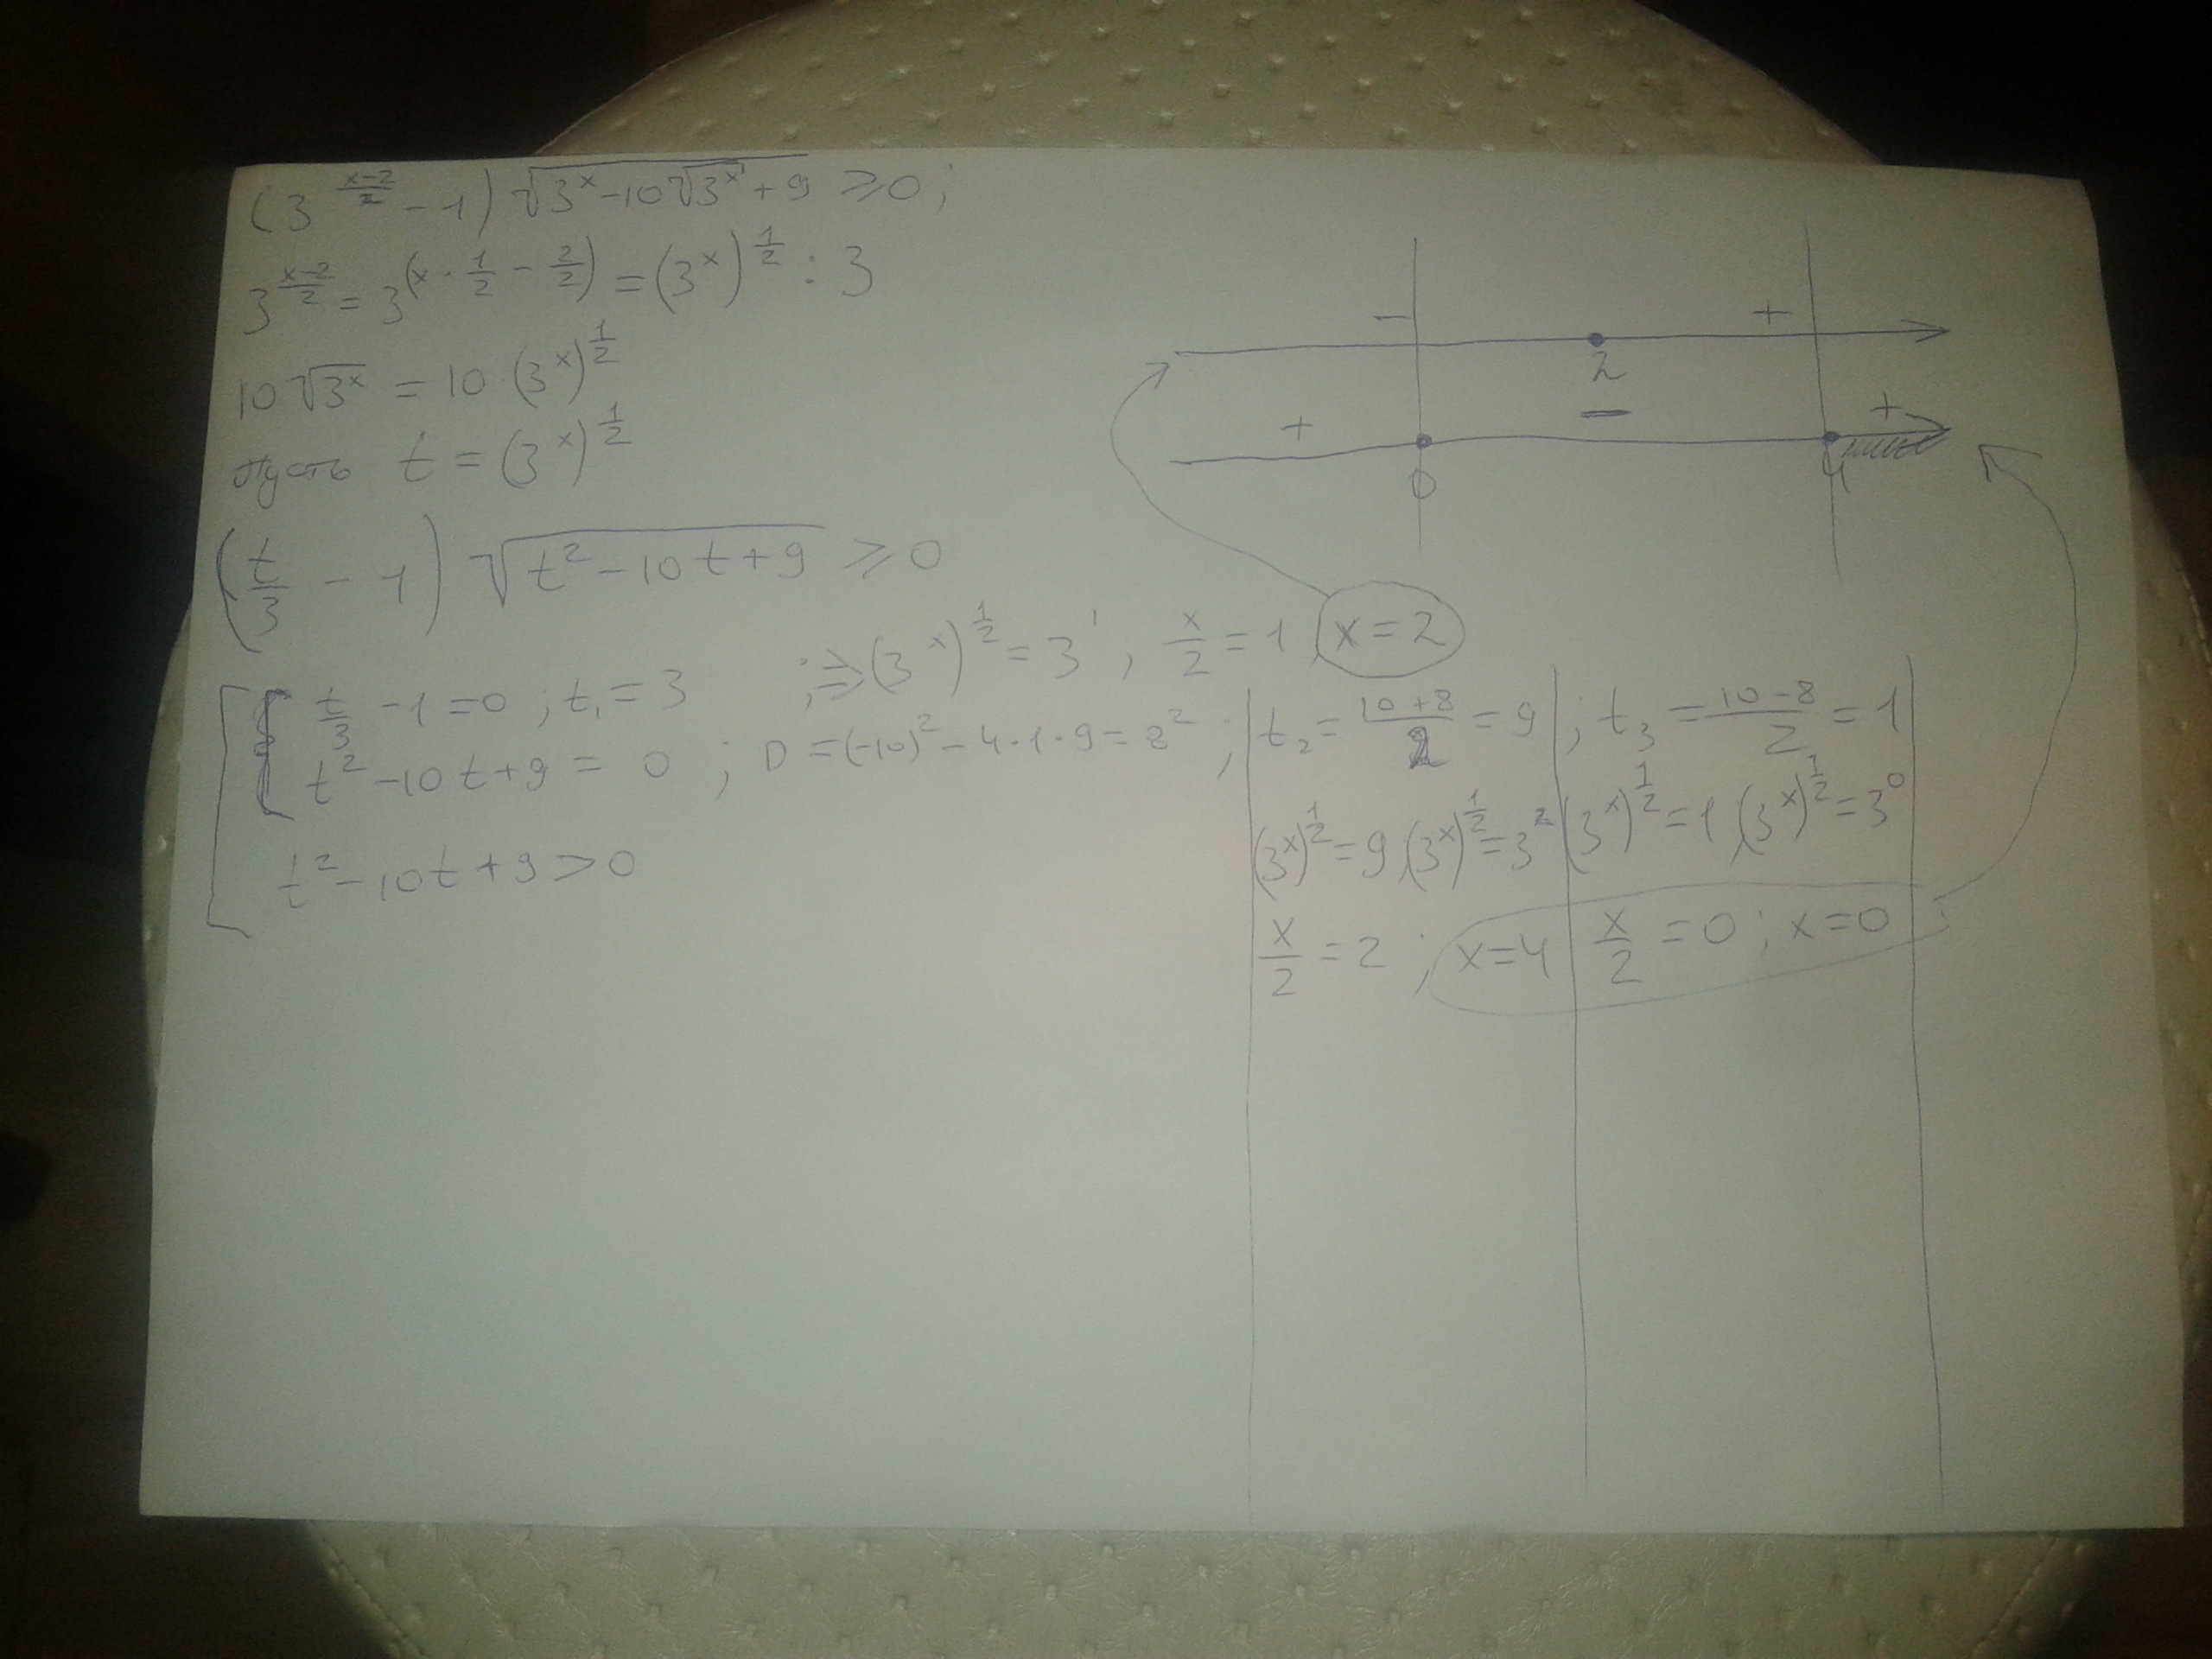 (3^{\frac{x-2}{2}} - 1) \sqrt{3^x - 10\sqrt{3^x} + 9} \geq 0;
3^{\frac{x-2}{2}} = 3^{(x \cdot \frac{1}{2} - \frac{2}{2})} = (3^x)^{\frac{1}{2}} : 3
10\sqrt{3^x} = 10 \cdot (3^x)^{\frac{1}{2}}
пусть t = (3^x)^{\frac{1}{2}}
(\frac{t}{3} - 1) \sqrt{t^2 - 10t + 9} \geq 0
\frac{t}{3} - 1 = 0; t_1 = 3 ; ⇒ (3^x)^{\frac{1}{2}} = 3^1; \frac{x}{2} = 1, x = 2
t^2 - 10t + 9 = 0; D = (-10)^2 - 4 \cdot 1 \cdot 9 = 8^2; t_2 = \frac{10+8}{2} = 9; t_3 = \frac{10-8}{2} = 1
t^2 - 10t + 9 > 0
(3^x)^{\frac{1}{2}} = 9; (3^x)^{\frac{1}{2}} = 3^2
\frac{x}{2} = 2; x = 4
(3^x)^{\frac{1}{2}} = 1, (3^x)^{\frac{1}{2}} = 3^0
\frac{x}{2} = 0; x = 0
- +
2
+ - +
0 4